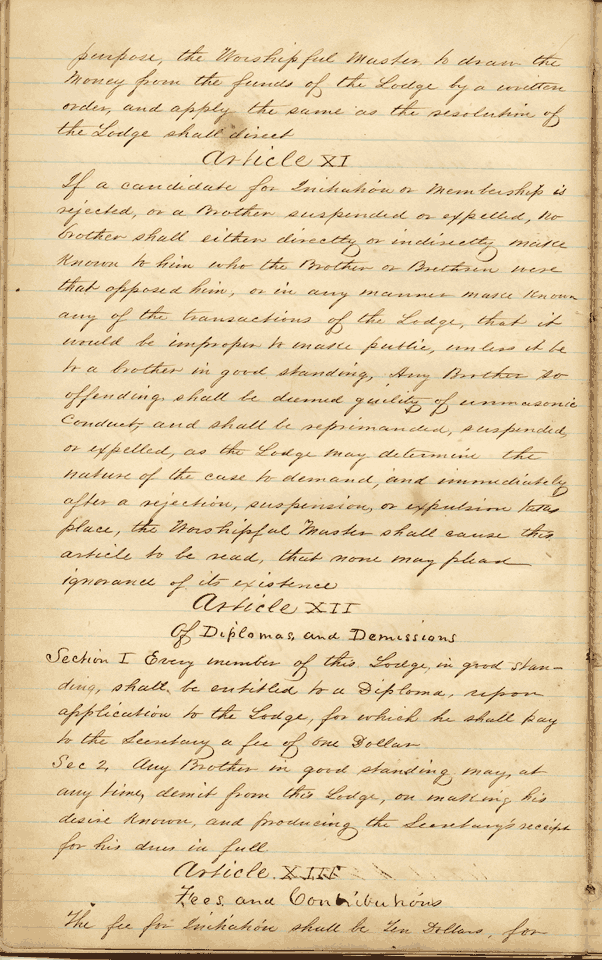 purpose, the Worshipful Master to draw the
Money from the funds of the Lodge by a written
order, and apply the same as the resolution of
the Lodge shall direct
Article XI
If a candidate for Initiation or Membership is
rejected, or a Brother suspended or expelled, no
brother shall either directly or indirectly make
Known to him who the Brother or Brethren were
that opposed him, or in any manner make Known
any of the transactions of the Lodge, that it
would be improper to make public, unless it be
to a brother in good standing, Any Brother so
offending shall be deemed guility of unmasonic
Conduct, and shall be reprimanded, suspended,
or expelled, as the Lodge may determine the
nature of the case to demand, and immediately
after a rejection, suspension, or expulsion takes
place, the Worshipful Master shall cause this
article to be read, that none may plead
ignorance of its existence
Article XII
Of Diplomas, and Demissions
Section I Every member of this Lodge, in good stan-
ding, shall, be entitled to a Diploma, upon
application to the Lodge, for which he shall pay
to the Secretary a fee of one Dollar
Sec 2, Any Brother in good standing may, at
any time, demit from this Lodge, on making his
desire Known, and producing the Secretary's receipt
for his dues in full
Article XIII
Fees, and Contributions
The fee for Initiation shall be Ten Dollars, for